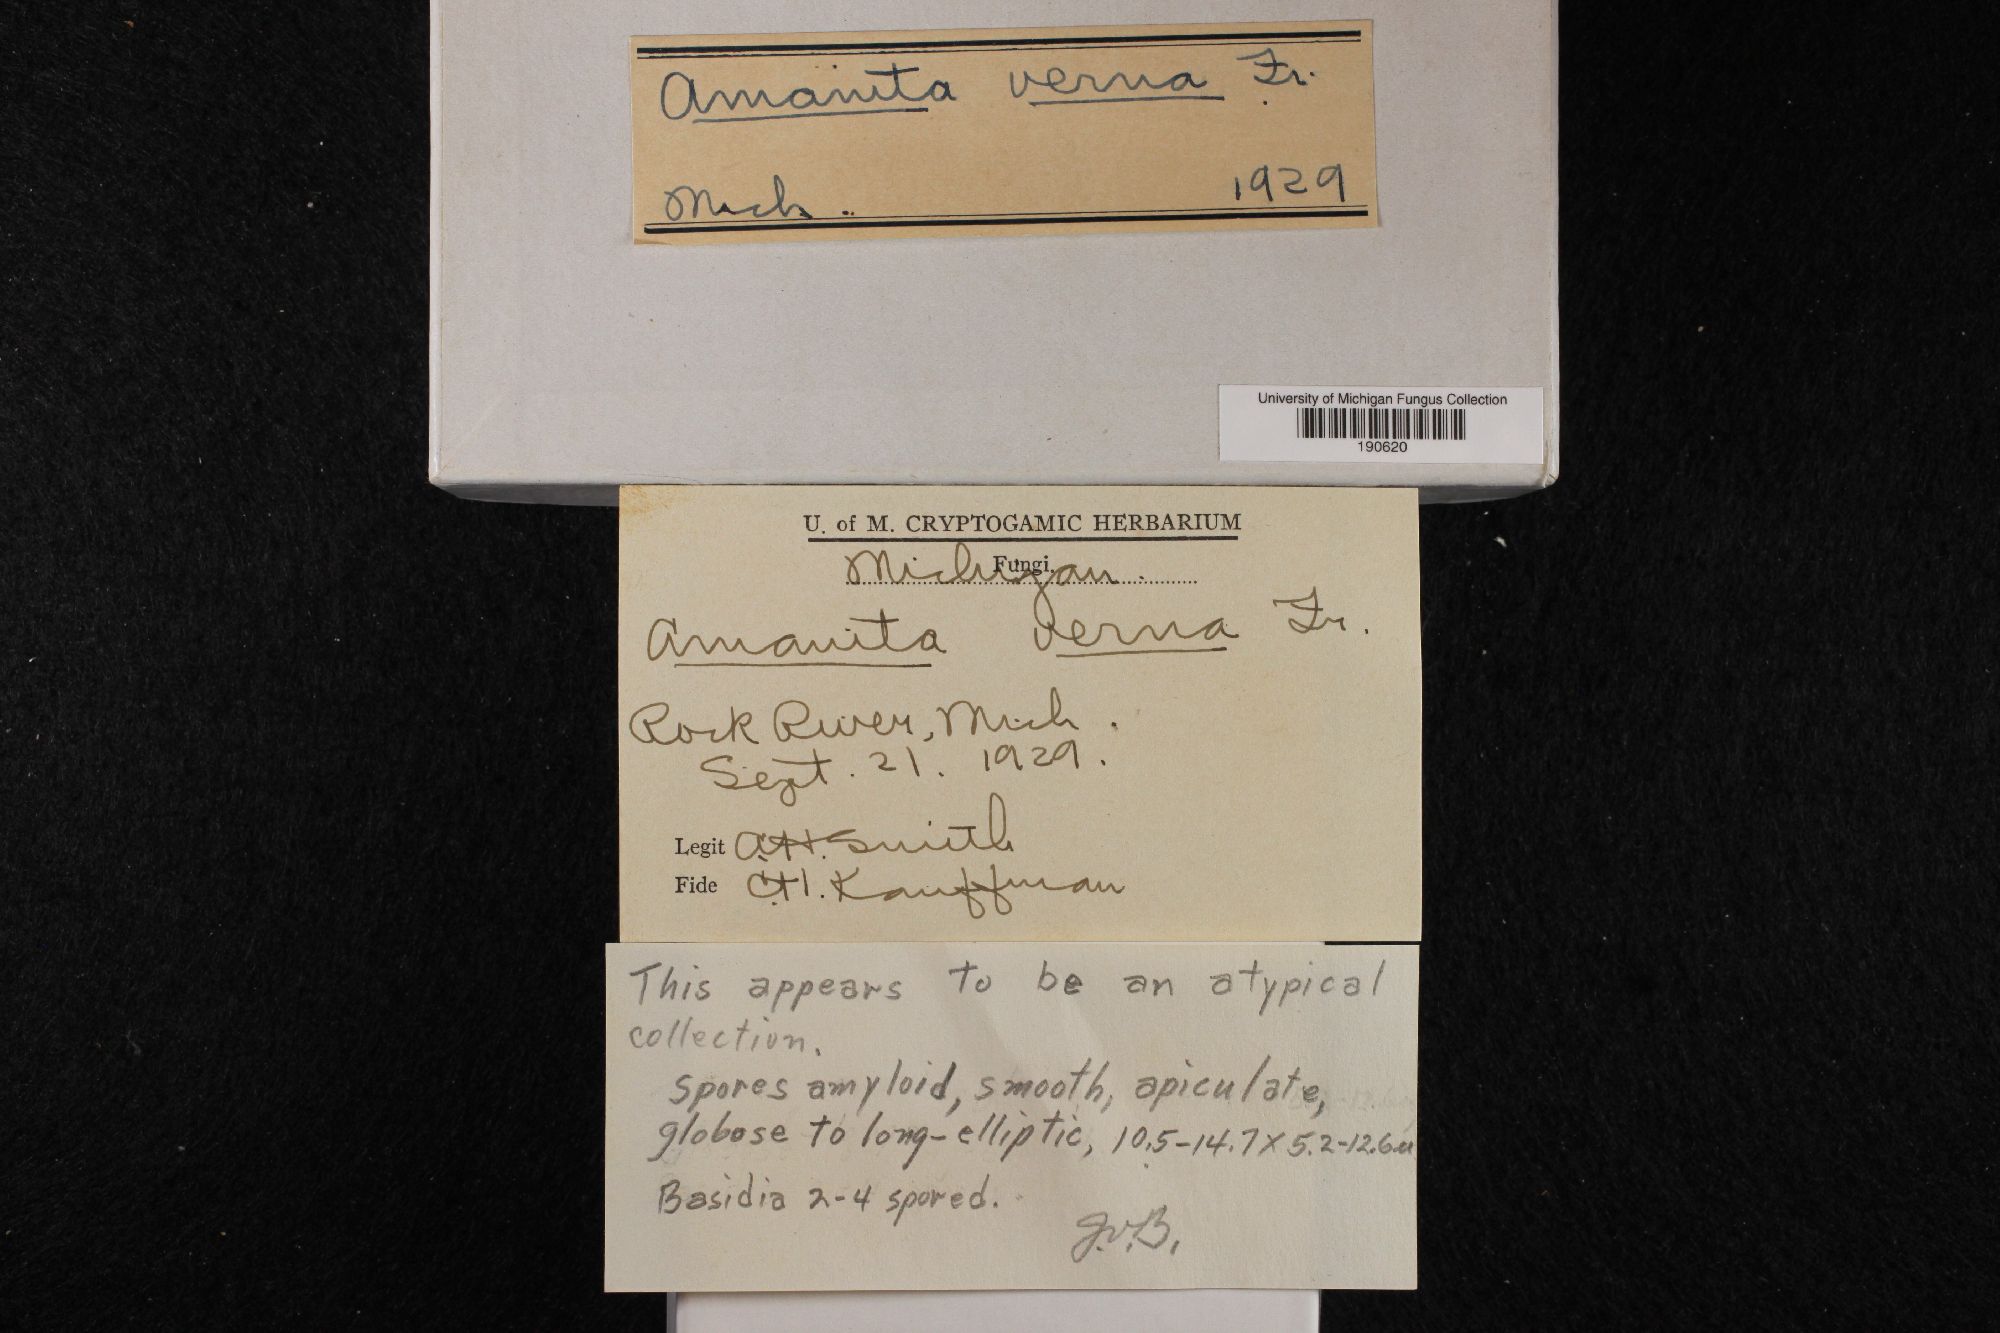 Amanita verna Fr.
Mich. 1929
University of Michigan Fungus Collection
190620
U. of M. CRYPTOGAMIC HERBARIUM
Fungi,
Michigan.
Amanita verna Fr.
Rock River, Mich.
Sept. 21. 1929.
Legit A.H. Smith
Fide C.H. Kauffman
This appears to be an atypical
collection.
Spores amyloid, smooth, apiculate,
globose to long-elliptic, 10.5-14.7 x 5.2-12.6 u
Basidia 2-4 spored.
J.v.B.